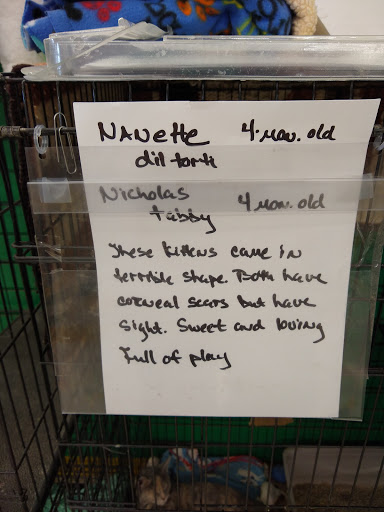 Nanette 4. mon. old
dil tortie
Nicholas 4 mon. old
tabby
These kittens came in
terrible shape. Both have
corneal scars but have
sight. Sweet and loving
Full of play